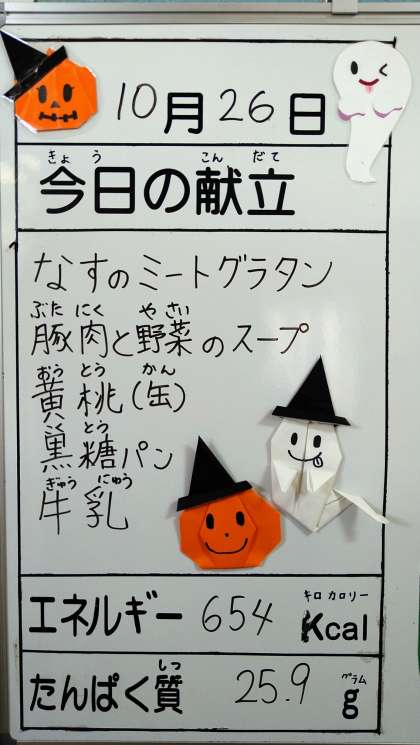 10月26日
きょう こん だて
今日の献立
なすのミートグラタン
ぶた にく や さい
豚肉と野菜のスープ
おう とう かん
黄桃(缶)
く とう
黒糖パン
ぎゅう にゅう
牛乳
キロ カロリー
エネルギー 654 Kcal
しつ グラム
たんぱく質 25.9 g